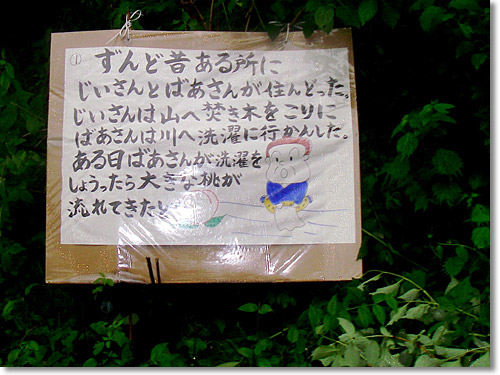 ①
ずんど昔ある所に
じいさんとばあさんが住んどった。
じいさんは山へ焚き木をこりに
ばあさんは川へ洗濯に行かんした。
ある日ばあさんが洗濯を
しょうったら大きな桃が
流れてきたい